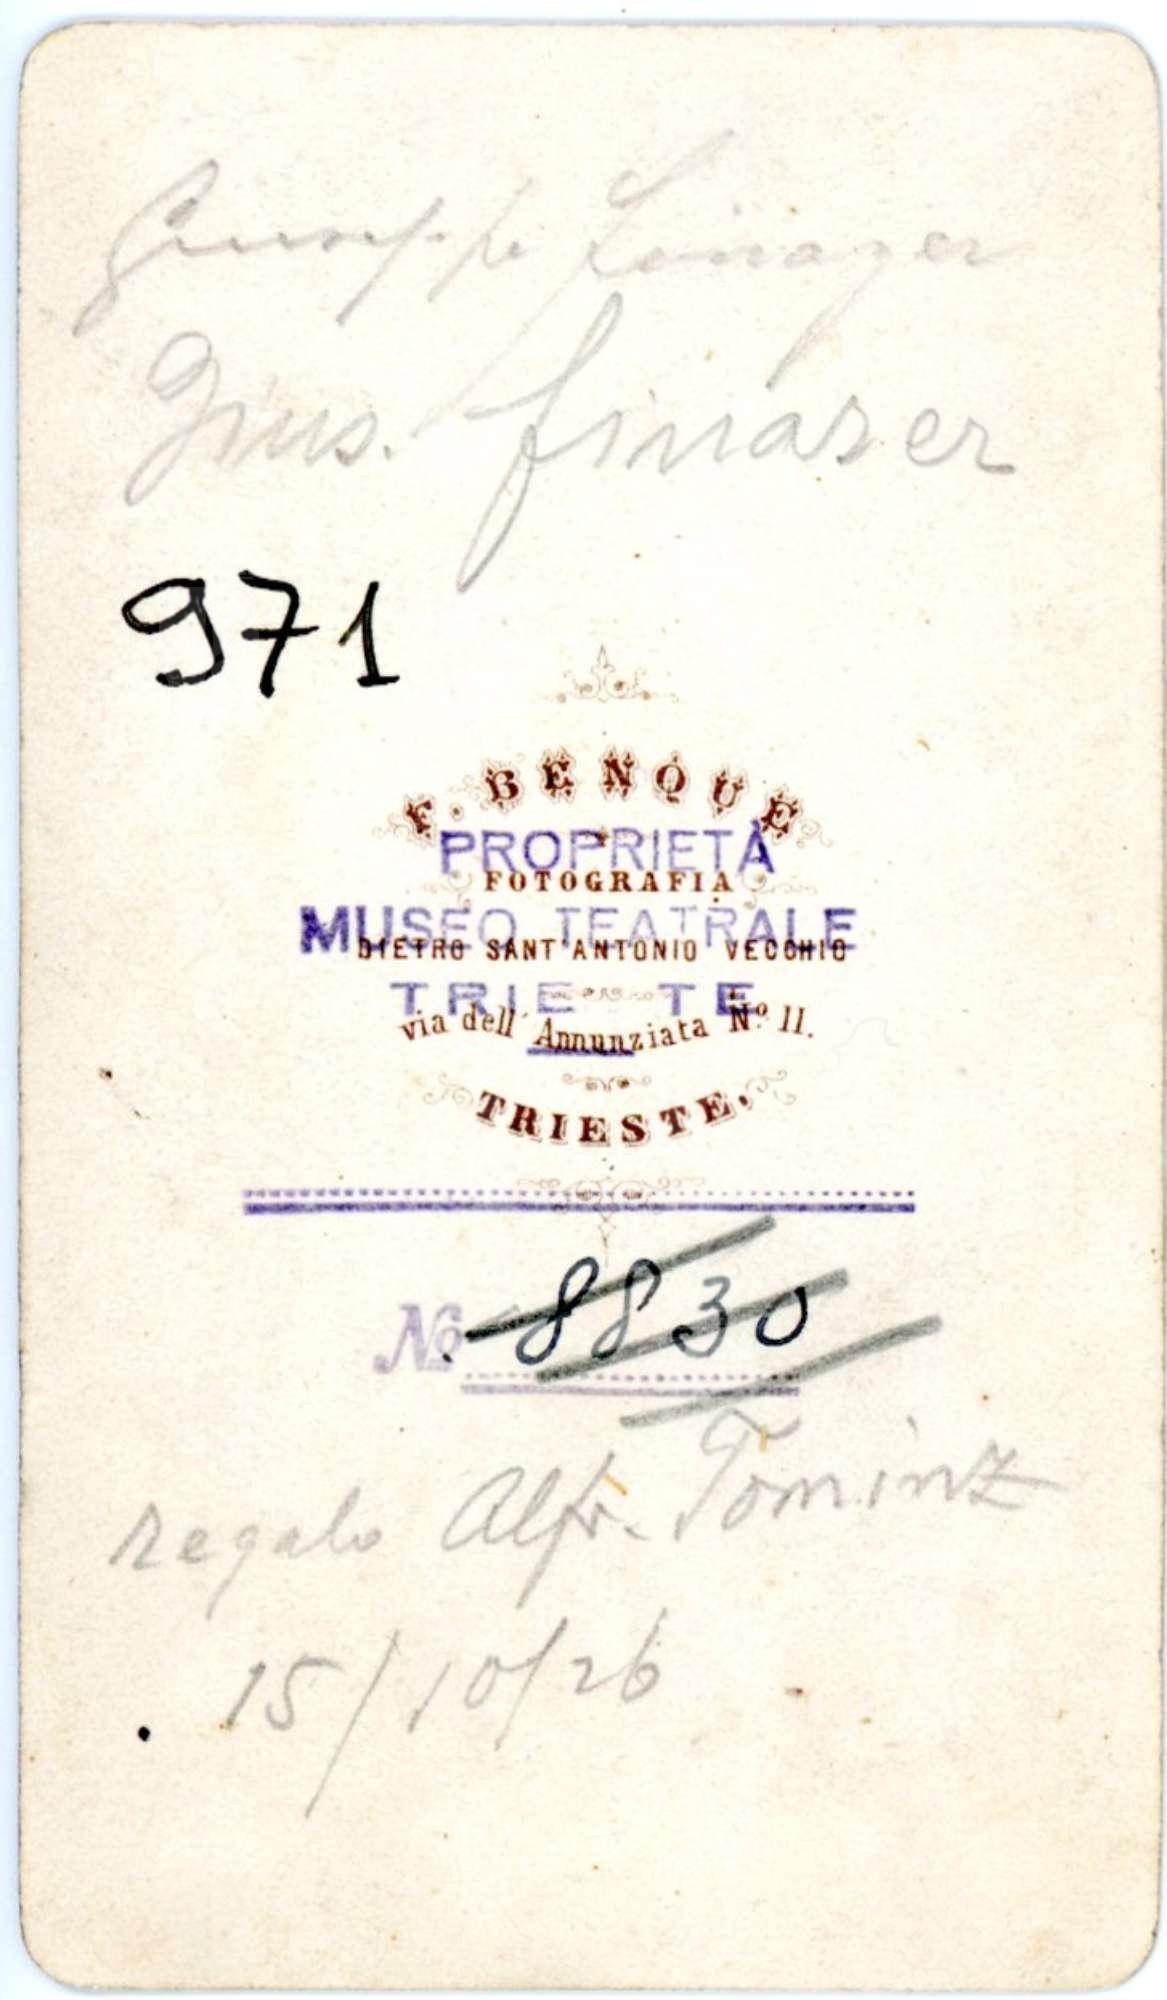 Giuseppe Finazer
Gius. Finazer
971
F. BENQUE
PROPRIETÀ
FOTOGRAFIA
MUSEO TEATRALE
DIETRO SANT'ANTONIO VECCHIO
TRIE TE
via dell' Annunziata Nº 11.
TRIESTE.
No 8830
regalo Alfr. Tominz
15/10/26